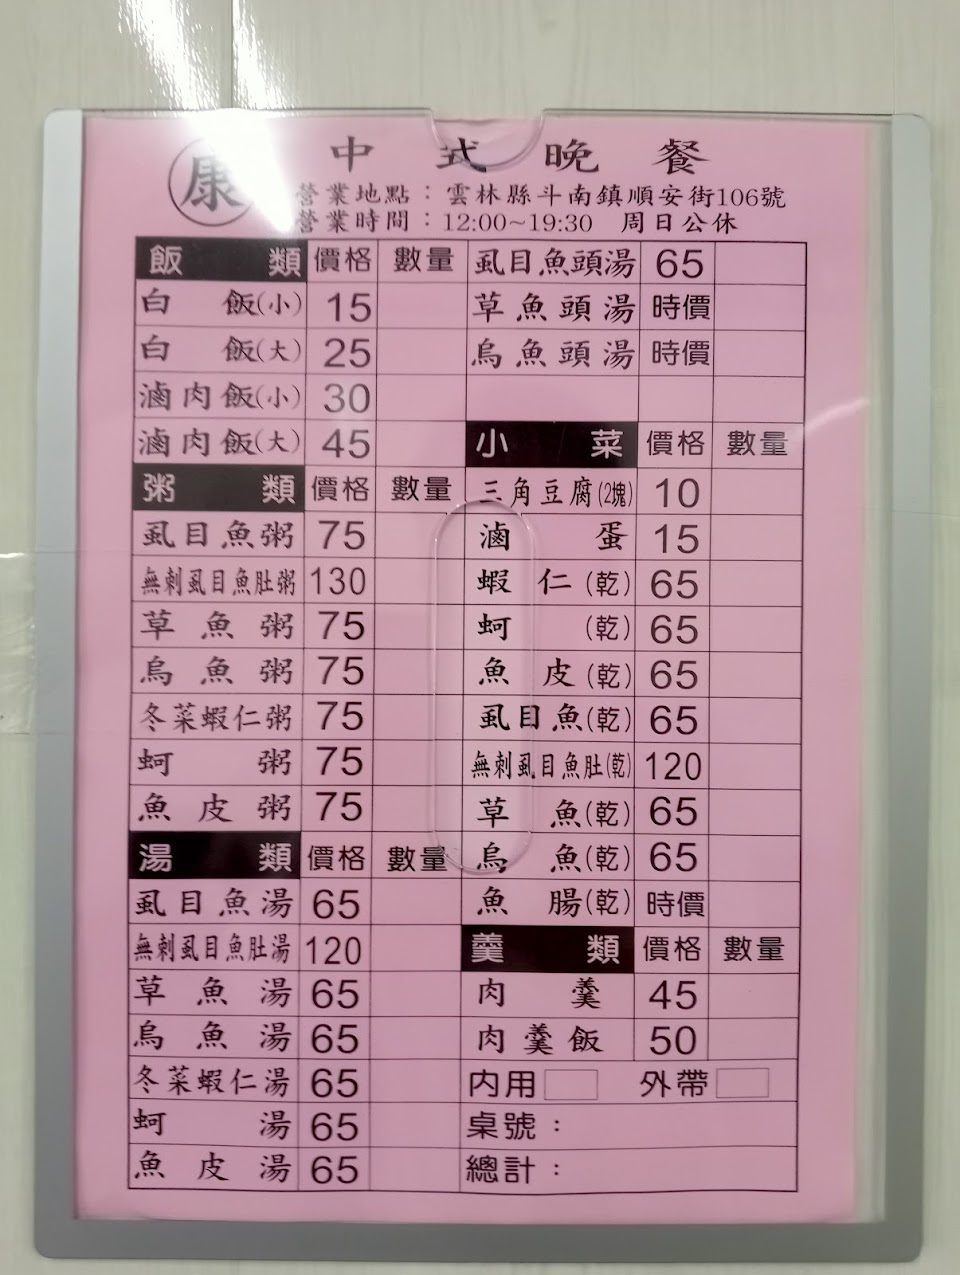 康
中式晚餐
營業地點：雲林縣斗南鎮順安街106號
營業時間：12:00~19:30 周日公休
飯類 價格 數量
白飯(小) 15
白飯(大) 25
滷肉飯(小) 30
滷肉飯(大) 45
粥類 價格 數量
虱目魚粥 75
無刺虱目魚肚粥 130
草魚粥 75
烏魚粥 75
冬菜蝦仁粥 75
蚵粥 75
魚皮粥 75
湯類 價格 數量
虱目魚湯 65
無刺虱目魚肚湯 120
草魚湯 65
烏魚湯 65
冬菜蝦仁湯 65
蚵湯 65
魚皮湯 65
虱目魚頭湯 65
草魚頭湯 時價
烏魚頭湯 時價
小菜 價格 數量
三角豆腐(2塊) 10
滷蛋 15
蝦仁(乾) 65
蚵(乾) 65
魚皮(乾) 65
虱目魚(乾) 65
無刺虱目魚肚(乾) 120
草魚(乾) 65
烏魚(乾) 65
魚腸(乾) 時價
羹類 價格 數量
肉羹 45
肉羹飯 50
內用 外帶
桌號：
總計：